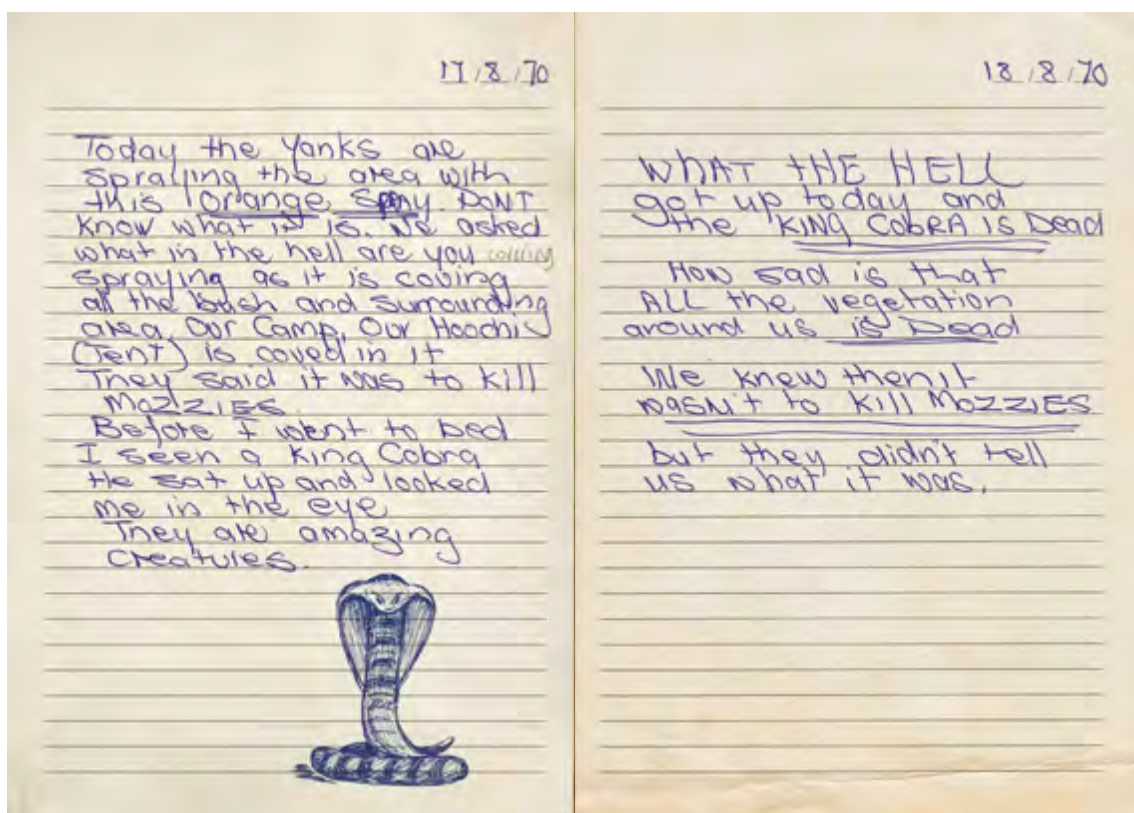 17/8/70
Today the Yanks are
spraying the area with
this orange spray. DONT
know what it is. We asked
what in the hell are you
spraying as it is coving
all the bush and surrounding
area, Our Camp, Our Hoochi
(Tent) is coved in it
They said it was to kill
MOZZIES.
Before I went to bed
I seen a King Cobra
He sat up and looked
me in the eye
They are amazing
creatures.
18/8/70
WHAT tHE HELL
got up today and
the KING CobRA IS Dead
How sad is that
ALL the vegetation
around us is Dead
We knew then it
wasn't to kill MOZZIES
but they didn't tell
us what it was.